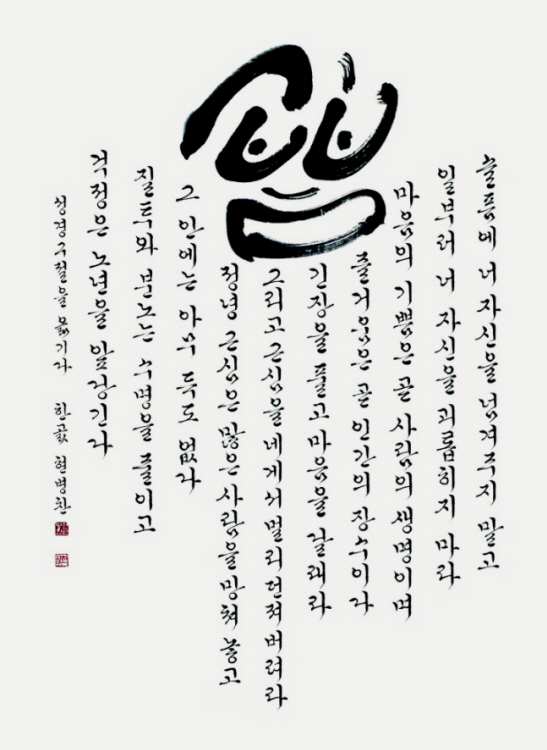 슬픔에 너 자신을 넘겨주지 말고
일부러 너 자신을 괴롭히지 마라
마음의 기쁨은 곧 사람의 생명이며
즐거움은 곧 인간의 장수이다
긴장을 풀고 마음을 달래라
그리고 근심을 네게서 멀리 던져 버려라
정녕 근심은 많은 사람을 망쳐 놓고
그 안에는 아무 득도 없다
질투와 분노는 수명을 줄이고
걱정은 노년을 앞당긴다
성경구절을 옮기다 한곬 현병찬